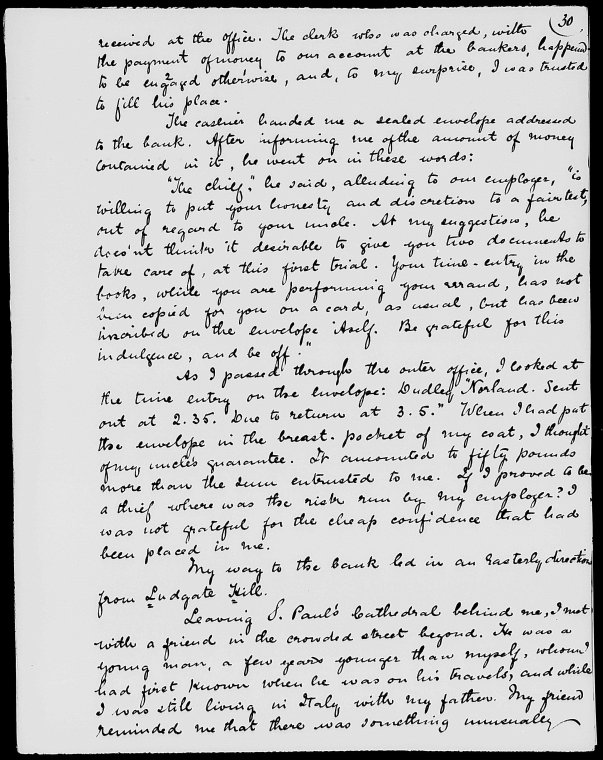 30
received at the office. The clerk who was charged, with
the payment of money to our account at the bankers, happened
to be engaged otherwise, and, to my surprise, I was trusted
to fill his place.
The cashier handed me a sealed envelope addressed
to the bank. After informing me of the amount of money
contained in it, he went on in these words:
"The chief," he said, alluding to our employer, "is
willing to put your honesty and discretion to a fair test,
out of regard to your uncle. At my suggestion, he
does'nt think it desirable to give you two documents to
take care of, at this first trial. Your time-entry in the
books, while you are performing your errand, has not
been copied for you on a card, as usual, but has been
inscribed on the envelope itself. Be grateful for this
indulgence, and be off."
As I passed through the outer office, I looked at
the time entry on the envelope: Dudley Norland. Sent
out at 2.35. Due to return at 3.5." When I had put
the envelope in the breast-pocket of my coat, I thought
of my uncle's guarantee. It amounted to fifty pounds
more than the sum entrusted to me. If I proved to be
a thief where was the risk run by my employer? I
was not grateful for the cheap confidence that had
been placed in me.
My way to the bank led in an Easterly direction
from Ludgate Hill.
Leaving S. Paul's Cathedral behind me, I met
with a friend in the crowded street beyond. He was a
young man, a few years younger than myself, whom I
had first known when he was on his travels, and while
I was still living in Italy with my father. My friend
reminded me that there was something unusually